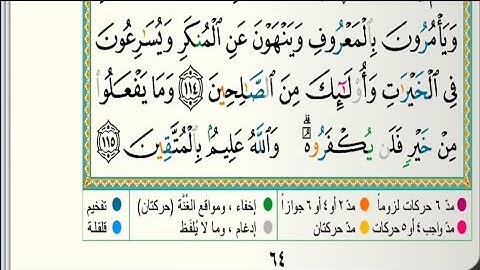 وَيَأْمُرُونَ بِالْمَعْرُوفِ وَيَنْهَوْنَ عَنِ الْمُنكَرِ وَيُسَارِعُونَ
فِي الْخَيْرَاتِ وَأُوْلَٰٓئِكَ مِنَ الصَّالِحِينَ ١١٤ وَمَا يَفْعَلُواْ
مِنْ خَيْرٍ فَلَن يُكْفَرُوهُ ۗ وَاللَّهُ عَلِيمٌۢ بِالْمُتَّقِينَ ١١٥
مدّ ٦ حركات لزوماً مدّ ٢ أو ٤ أو ٦ جوازاً إخفاء، ومواقع الغُنَّة (حركتان) تفخيم
مدّ واجب ٤ أو ٥ حركات مدّ حركتان إدغام، وما لا يُلفَظ قلقلة
٦٤